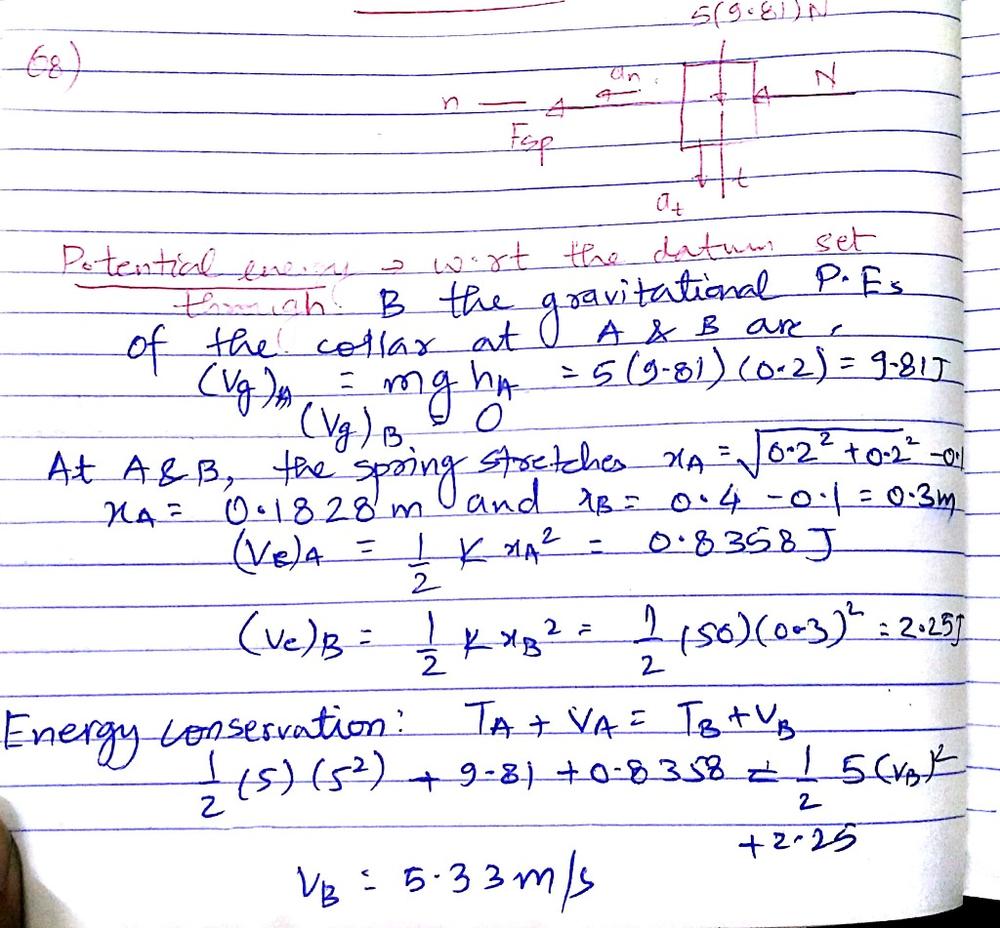 5(9.81)N
68)
an
n
N
Fsp
t
at
Potential energy → w.r.t the datum set
through B the gravitational P.Es
of the collar at A & B are,
(Vg)A = mg hA = 5(9.81)(0.2) = 9.81J
(Vg)B = 0
At A & B, the spring stretches xA = √0.2² + 0.2² - 0.1
xA = 0.1828 m and xB = 0.4 - 0.1 = 0.3m
(Ve)A = 1/2 K xA² = 0.8358 J
(Ve)B = 1/2 K xB² = 1/2 (50)(0.3)² = 2.25J
Energy conservation: TA + VA = TB + VB
1/2 (5)(5²) + 9.81 + 0.8358 = 1/2 5(VB)²
+ 2.25
VB = 5.33 m/s